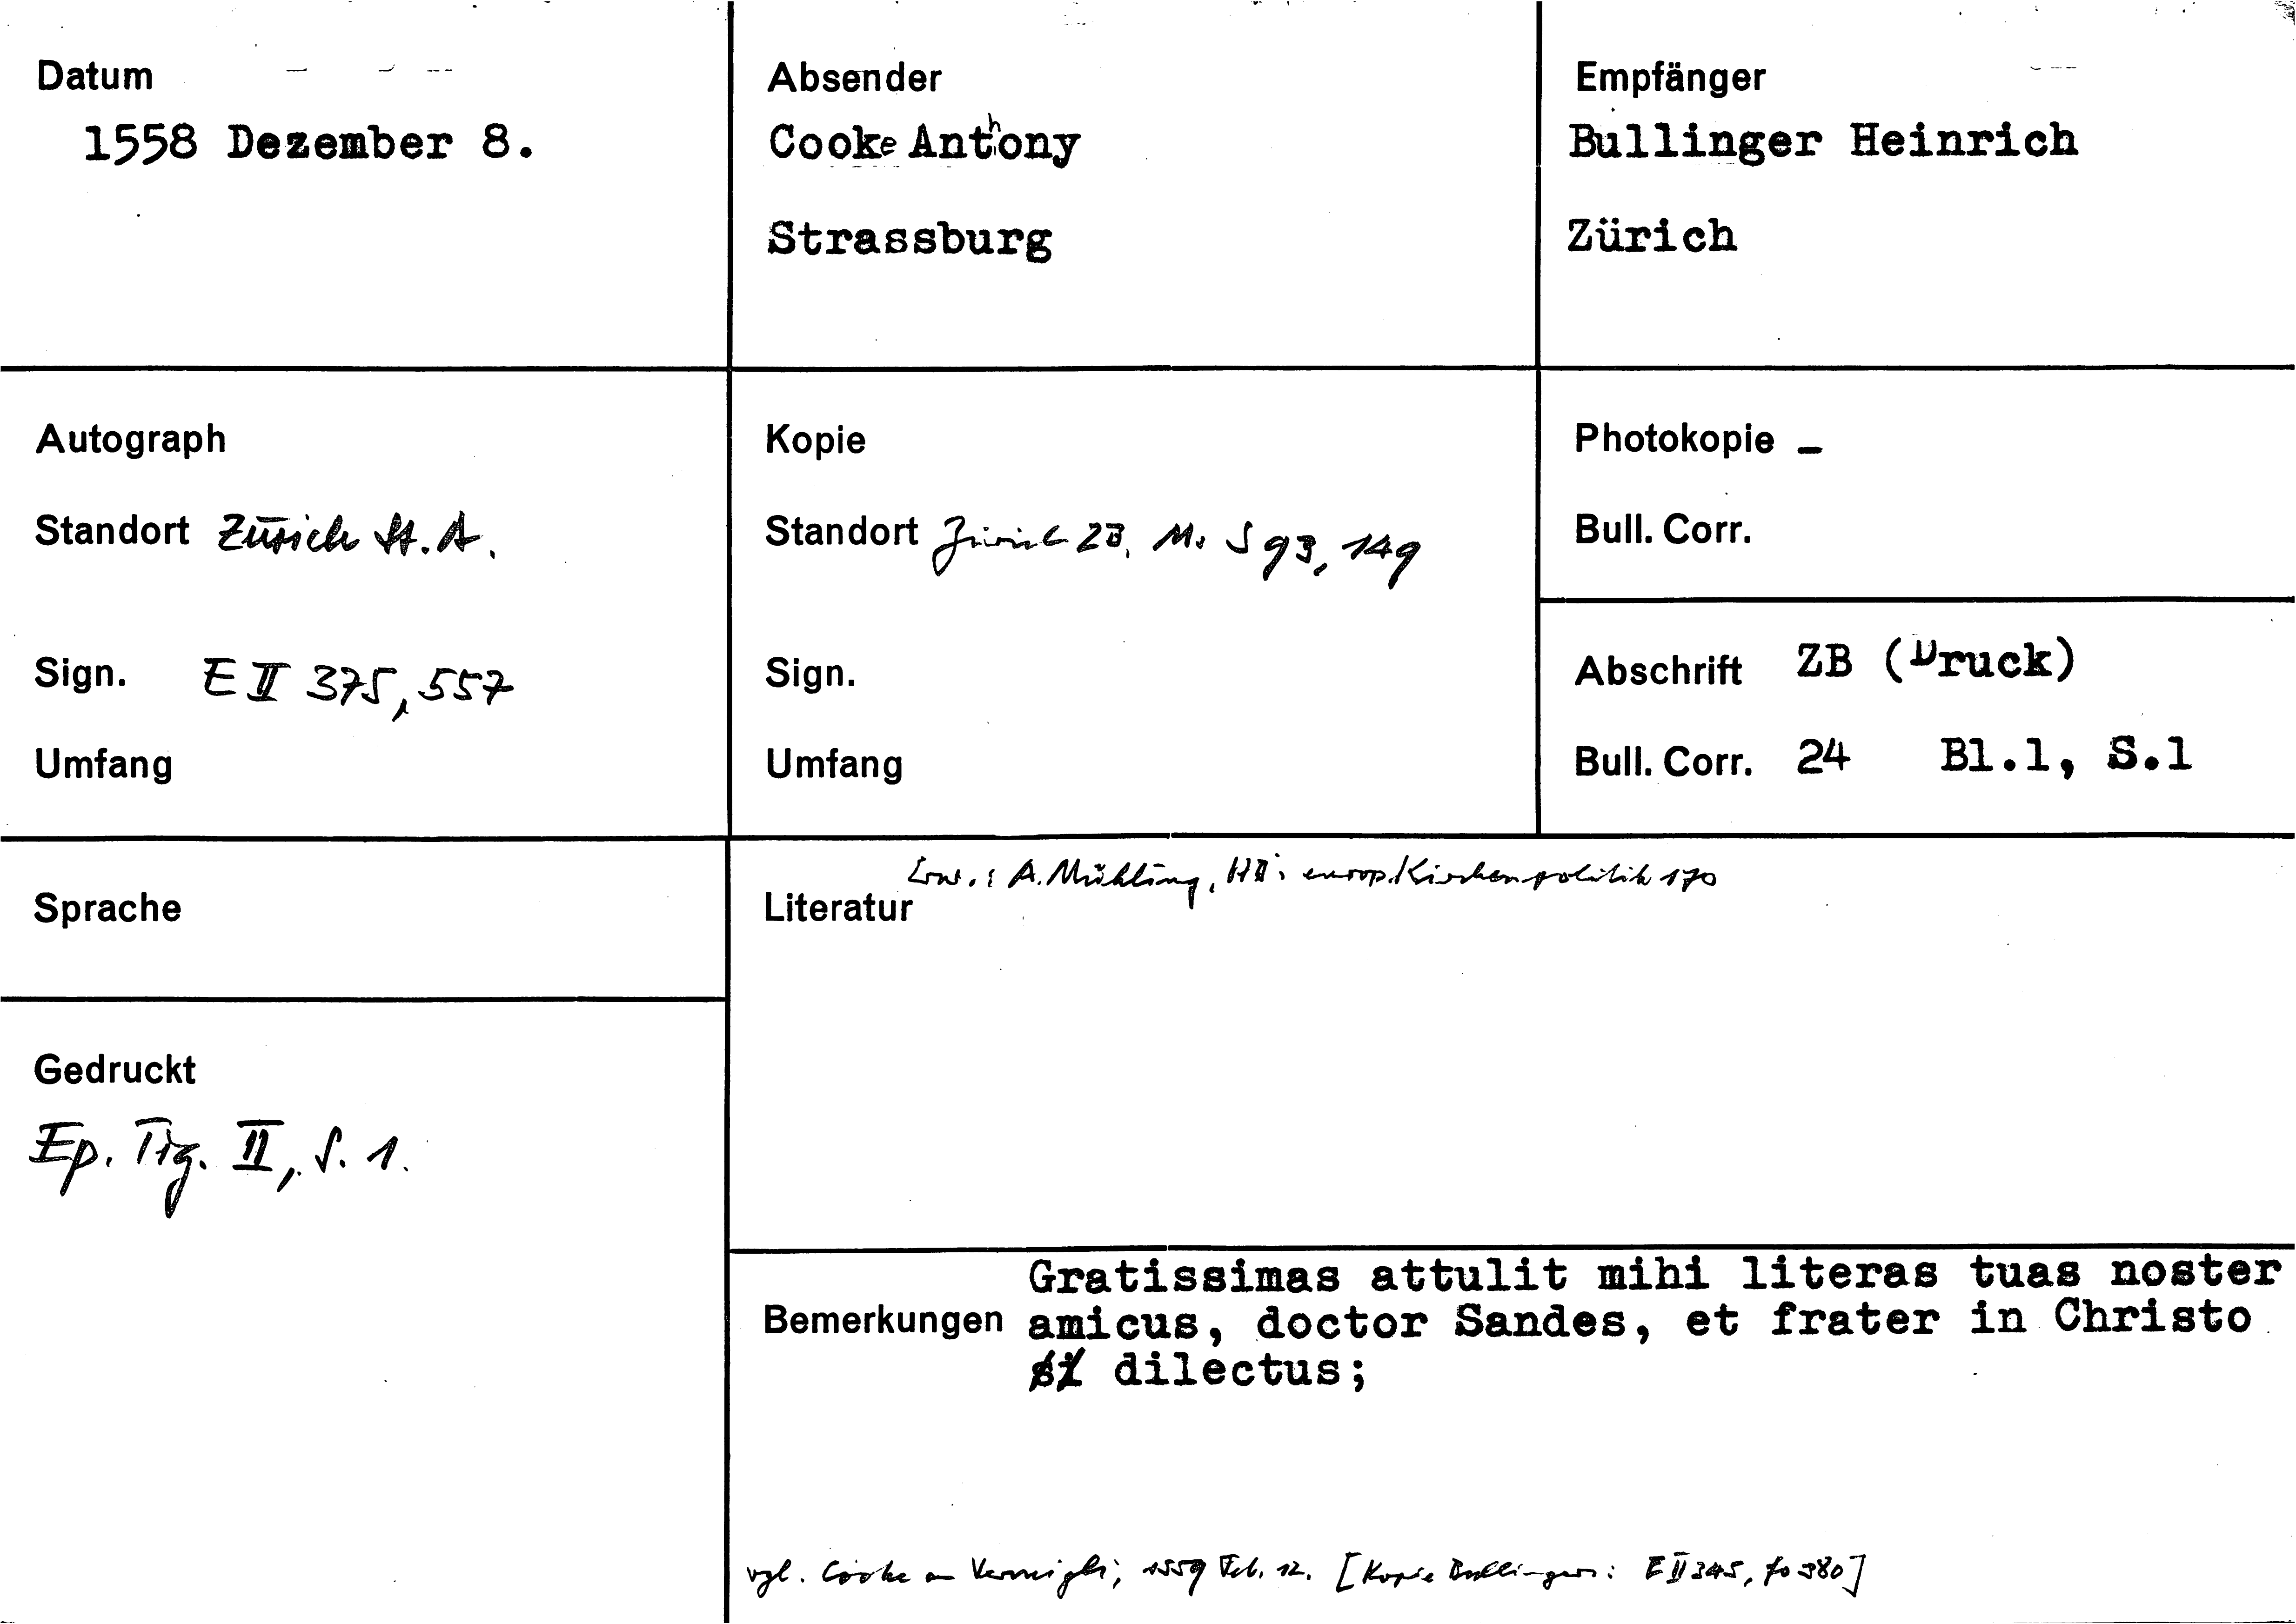 Datum
1558 Dezember 8.
Absender
Cooke Anthony
Strassburg
Empfänger
Bullinger Heinrich
Zürich
Autograph
Standort Zürich St. A.
Sign. E II 375, 557
Umfang
Kopie
Standort Zürich ZB, Ms S 93, 149
Sign.
Umfang
Photokopie –
Bull. Corr.
Abschrift ZB (Druck)
Bull. Corr. 24 Bl.1, S.1
Sprache
Gedruckt
Ep. Tig. II, S. 1.
Erw.: A. Mühling, HBs europ. Kirchenpolitik 170
Literatur
Gratissimas attulit mihi literas tuas noster
Bemerkungen amicus, doctor Sandes, et frater in Christo
dilectus;
vgl. Cooke an Vermigli, 1559 Feb. 12. [Kopie Bullingers: E II 345, fo 380]